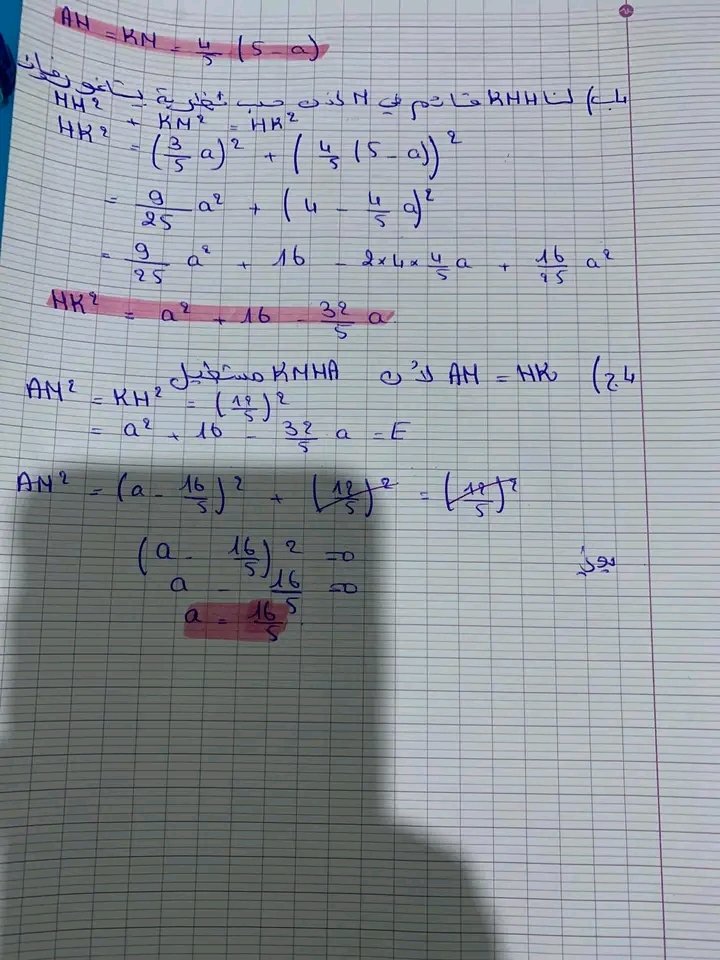 AH = KM = 4/5 (5 - a)
4.ب) لنا KMH قائم في M إذن حسب نظرية بيتاغور
MH² + KM² = HK²
HK² = (3/5 a)² + (4/5 (5 - a))²
= 9/25 a² + (4 - 4/5 a)²
= 9/25 a² + 16 - 2×4×4/5 a + 16/25 a²
HK² = a² + 16 - 32/5 a
4.ج) AM = HK لأن KMHA مستطيل
AM² = KH² = (12/5)²
= a² + 16 - 32/5 a = E
AM² = (a - 16/5)² + (12/5)² = (12/5)²
(a - 16/5)² = 0
a - 16/5 = 0
a = 16/5